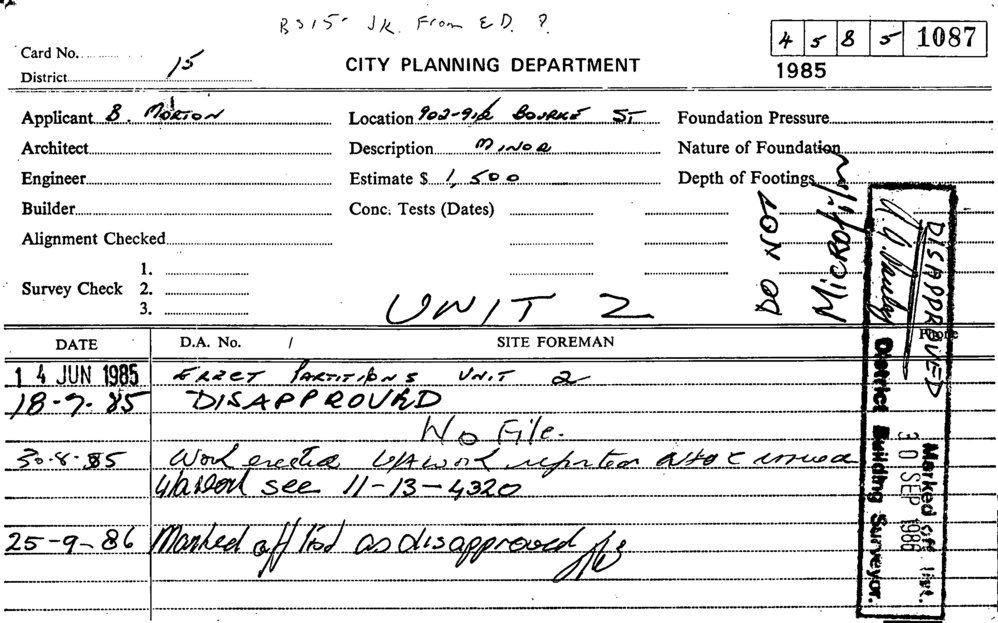 BS15 JK. From E.D. ?
4 5 8 5 1087
1985
Card No.
District 15
CITY PLANNING DEPARTMENT
Applicant B. MORTON
Location 902-912 BOURKE ST
Foundation Pressure
Architect
Description MINOR
Nature of Foundation
Engineer
Estimate $ 1,500
Depth of Footings
Builder
Conc. Tests (Dates)
Alignment Checked
Survey Check
1.
2.
3.
UNIT 2
DO NOT
Microform
DISAPPROVED
District Building Surveyor.
Marked off list.
30 SEP 1986
DATE D.A. No. / SITE FOREMAN Phone
14 JUN 1985 ERECT PARTITIONS UNIT 2
18-7-85 DISAPPROVED
No File.
30-8-85 Work erected U/A work reported issued
see 11-13-4320
25-9-86 Marked off list as disapproved